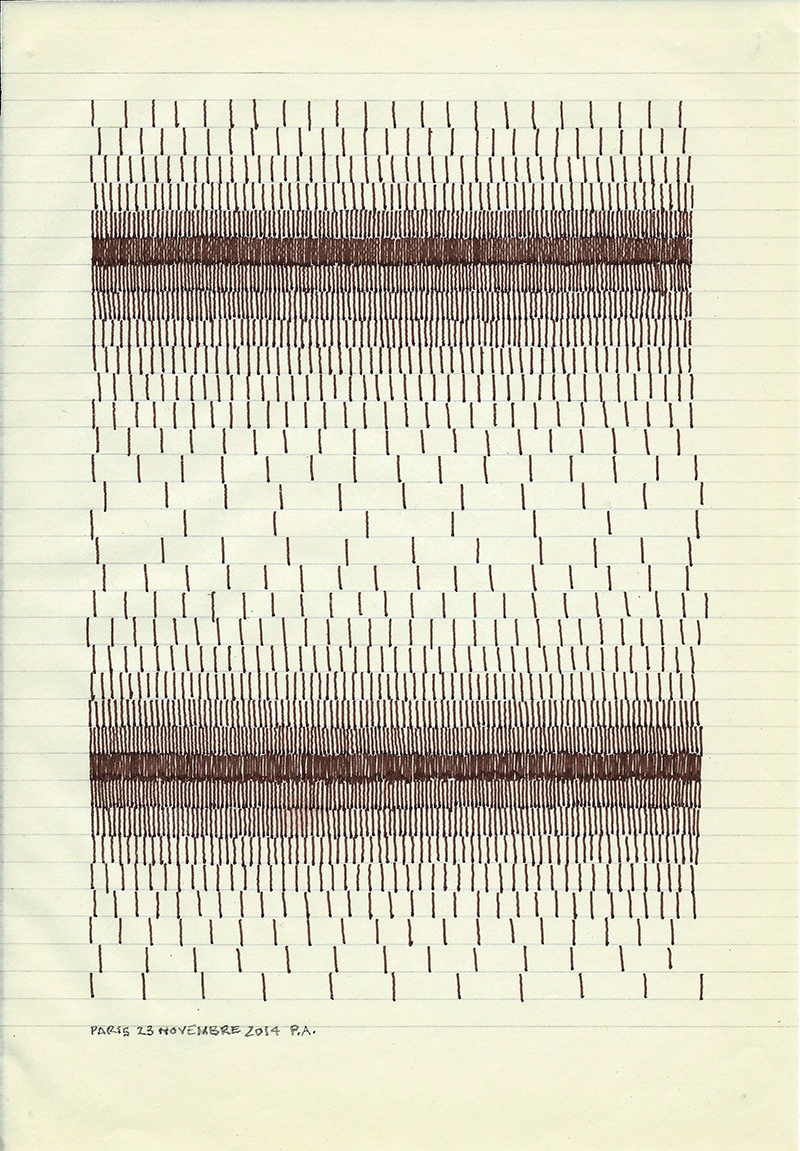 PARIS 23 NOVEMBRE 2014 P.A.